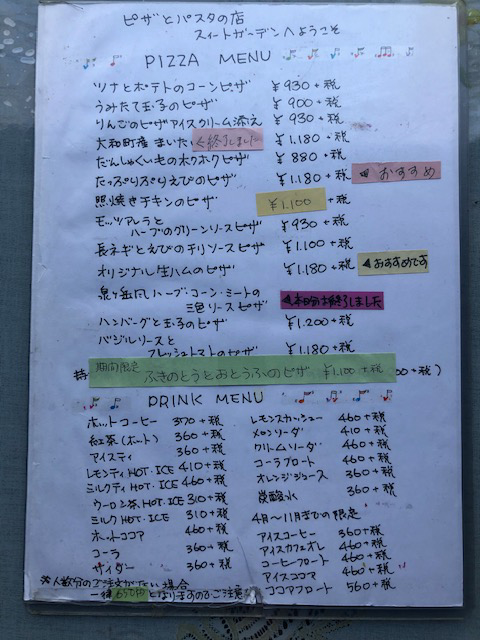 ピザとパスタの店
スィートガーデンへようこそ
PIZZA MENU
ツナとポテトのコーンピザ ¥930+税
うみたて玉子のピザ ¥900+税
りんごのピザアイスクリーム添え ¥930+税
大和町産 まいたけ <終了しました ¥1.180+税
だんしゃくいものホクホクピザ ¥880+税
たっぷりぷりえびのピザ ¥1.180+税 おすすめ
照焼きチキンのピザ ¥1.100 +税
モッツアレラと
ハーブのグリーンソースピザ ¥930+税
長ネギとえびのチリソースピザ ¥1.100+税
オリジナル生ハムのピザ ¥1.180+税 ◀おすすめです
泉ヶ岳風ハーブ・コーン・ミートの
三色ソースピザ ◀本日分は終了しました
ハンバーグと玉子のピザ ¥1.200+税
バジルソースと
フレッシュトマトのピザ ¥1.180+税
期間限定
ふきのとうとおとうふのピザ ¥1,100+税
DRINK MENU
ホットコーヒー 370+税
紅茶(ホット) 360+税
アイスティ 360+税
レモンティHOT・ICE 410+税
ミルクティHOT・ICE 460+税
ウーロン茶HOT・ICE 310+税
ミルクHOT・ICE 310+税
ホットココア 460+税
コーラ 360+税
サイダー 360+税
レモンスカッシュー 460+税
メロンソーダー 410+税
クリームソーダー 460+税
コーラフロート 460+税
オレンジジュース 360+税
炭酸水 360+税
4月〜11月までの限定
アイスコーヒー 360+税
アイスカフェオレ 460+税
コーヒーフロート 460+税
アイスココア 460+税
ココアフロート 560+税
※人数分のご注文がない場合
一律650円となりますのでご注意